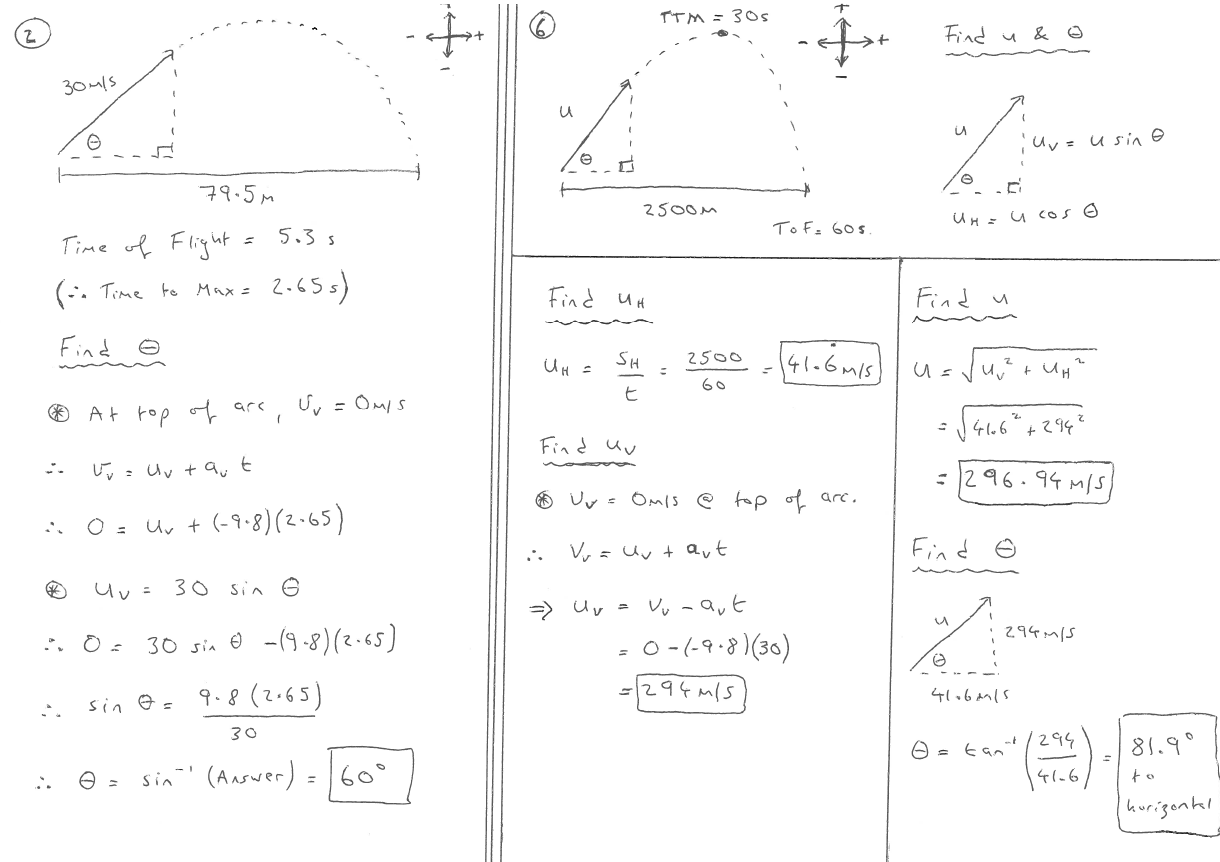 2
30 m/s
θ
79.5 m
Time of Flight = 5.3 s
(∴ Time to Max = 2.65 s)
Find θ
⊛ At top of arc, Vv = 0 m/s
∴ Vv = uv + av t
∴ 0 = uv + (-9.8)(2.65)
⊛ uv = 30 sin θ
∴ 0 = 30 sin θ -(9.8)(2.65)
∴ sin θ = 9.8 (2.65) / 30
∴ θ = sin⁻¹ (Answer) = 60°
6
TTM = 30s
u
θ
2500m
ToF = 60s.
Find u & θ
u
θ
uv = u sin θ
uH = u cos θ
Find uH
uH = sH / t = 2500 / 60 = 41.6̇ m/s
Find uv
⊛ Vv = 0 m/s @ top of arc.
∴ Vv = uv + av t
⇒ uv = Vv - av t
= 0 - (-9.8)(30)
= 294 m/s
Find u
u = √(uv² + uH²)
= √(41.6² + 294²)
= 296.94 m/s
Find θ
u
θ
294 m/s
41.6 m/s
θ = tan⁻¹ (294 / 41.6) = 81.9°
to
horizontal